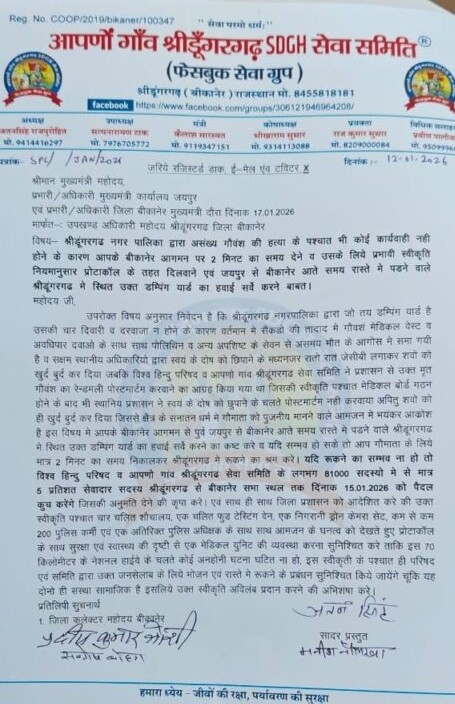 Reg. No. COOP/2019/bikaner/100347
" सेवा परमो धर्मः"
आपणों गाँव श्रीडूँगरगढ़ SDGH सेवा समिति®
(फेसबुक सेवा ग्रुप)
श्रीडूंगरगढ़ ( बीकानेर ) राजस्थान मो. 8455818181
facebook https://www.facebook.com/groups/306121946964208/
अध्यक्ष उपाध्यक्ष मंत्री कोषाध्यक्ष प्रवक्ता विधिक सलाह
जतनसिंह राजपुरोहित सत्यनारायण टाक कैलाश सारस्वत श्रीखाराम सुथार राज कुमार सुथार प्रवीण पालीव
मो. 9414416297 मो. 7976705772 मो. 9119347151 मो. 9314113088 मो. 8209000084 मो. 95099966
पत्रांक- SPL/ /JAN/2026 जरिये रजिस्टर्ड डाक, ई-मेल एंव टविटर X दिनांक:- 12-01-2026
श्रीमान मुख्यमंत्री महोदय,
प्रभारी/अधिकारी मुख्यमंत्री कार्यालय जयपुर
एवं प्रभारी/अधिकारी जिला बीकानेर मुख्यमंत्री दौरा दिनाक 17.01.2026
मार्फत-: उपखण्ड अधिकारी महोदय श्रीडूंगरगढ जिला बीकानेर
विषय- श्रीडूंगरगढ नगर पालिका द्वारा असंख्य गौवंश की हत्या के पश्चात भी कोई कार्यवाही नही
होने के कारण आपके बीकानेर आगमन पर 2 मिनट का समय देने व उसके लिये प्रभावी स्वीकृति
नियमानुसार प्रोटाकॉल के तहत दिलवाने एंव जयपुर से बीकानेर आते समय रास्ते मे पडने वाले
श्रीडूंगरगढ मे स्थित उक्त डम्पिंग यार्ड का हवाई सर्वे करने बाबत।
महोदय जी,
उपरोक्त विषय अनुसार निवेदन है कि श्रीडूंगरगढ नगरपालिका द्वारा जो तय डम्पिंग यार्ड है
उसकी चार दिवारी व दरवाजा न होने के कारण वर्तमान मे सैंकडो की तादाद मे गौवंश मेडिकल वेस्ट व
अवधिपार दवाओ के साथ साथ पोलिथिन व अन्य अपशिष्ट के सेवन से असमय मौत के आगोस मे समा गयी
है व सक्षम स्थानीय अधिकारियो द्वारा स्वयं के दोष को छिपाने के मध्यनजर रातो रात जेसीबी लगाकर शवो को
खुर्द बुर्द कर दिया जबकि विश्व हिन्दु परिषद व आपणो गाव श्रीडूंगरगढ सेवा समिति ने प्रशासन से उक्त मृत
गौवंश का रेन्डमली पोस्टमार्टम करवाने का आग्रह किया गया था जिसकी स्वीकृति पश्चात मेडिकल बोर्ड गठन
होने के बाद भी स्थानिय प्रशासन ने स्वयं के दोष को छुपाने के चलते पोस्टमार्टम नही करवाया अपितु शवो को
ही खुर्द बुर्द कर दिया जिससे क्षेत्र के सनातन धर्म मे गौमाता को पुजनीय मानने वाले आमजन मे भयंकर आकोश
है इस विषय मे आपके बीकानेर आगमन से पुर्व जयपुर से बीकानेर आते समय रास्ते मे पडने वाले श्रीडूंगरगढ
मे स्थित उक्त डम्पिंग यार्ड का हवाई सर्वे करने का कष्ट करे व यदि सम्भव हो सके तो आप गौमाता के लिये
मात्र 2 मिनट का समय निकालकर श्रीडूंगरगढ मे रूकने का श्रम करे। यदि रूकने का सम्भव ना हो तो
विश्व हिन्दु परिषद व आपणो गाव श्रीडूंगरगढ सेवा समिति के लगभग 81000 सदस्यो मे से मात्र
5 प्रतिशत सेवादार सदस्य श्रीडूंगरगढ से बीकानेर सभा स्थल तक दिनाक 15.01.2026 को पैदल
कुच करेंगे जिसकी अनुमति देने की कृपा करे। एवं साथ ही साथ जिला प्रशासन को आदेशित करे की उक्त
स्वीकृति पश्चात चार चलित शौचालय, एक चलित फुड टेस्टिंग वेन, एक निगरानी ड्रोन केमरा सेट, कम से कम
200 पुलिस कर्मी एवं एक अतिरिक्त पुलिस अधिक्षक के साथ साथ आमजन के घनत्व को देखते हुए प्रोटाकॉल
के साथ सुरक्षा एवं स्वास्थ्य की दृष्टी से एक मेडिकल युनिट की व्यवस्था करना सुनिश्चित करे ताकि इस 70
किलोमीटर के नेशनल हाईवे के चलते कोई अनहोनी घटना घटित ना हो, इस स्वीकृती के पश्चात ही परिषद
एवं समिति द्वारा उक्त जनसेलाब के लिये भोजन एवं रास्ते मे रूकने के प्रबंधन सुनिश्चित किये जायेंगे चुंकि यह
दोनो ही संस्था सामाजिक है इसलिये उक्त स्वीकृति अविलंब प्रदान करने की अभिशंषा करे।
प्रतिलिपी सुचनार्थ
1. जिला कलेक्टर महोदय बीकानेर
प्रदीप कुमार जोशी
सादर प्रस्तुत
हमारा ध्येय - जीवों की रक्षा, पर्यावरण की सुरक्षा